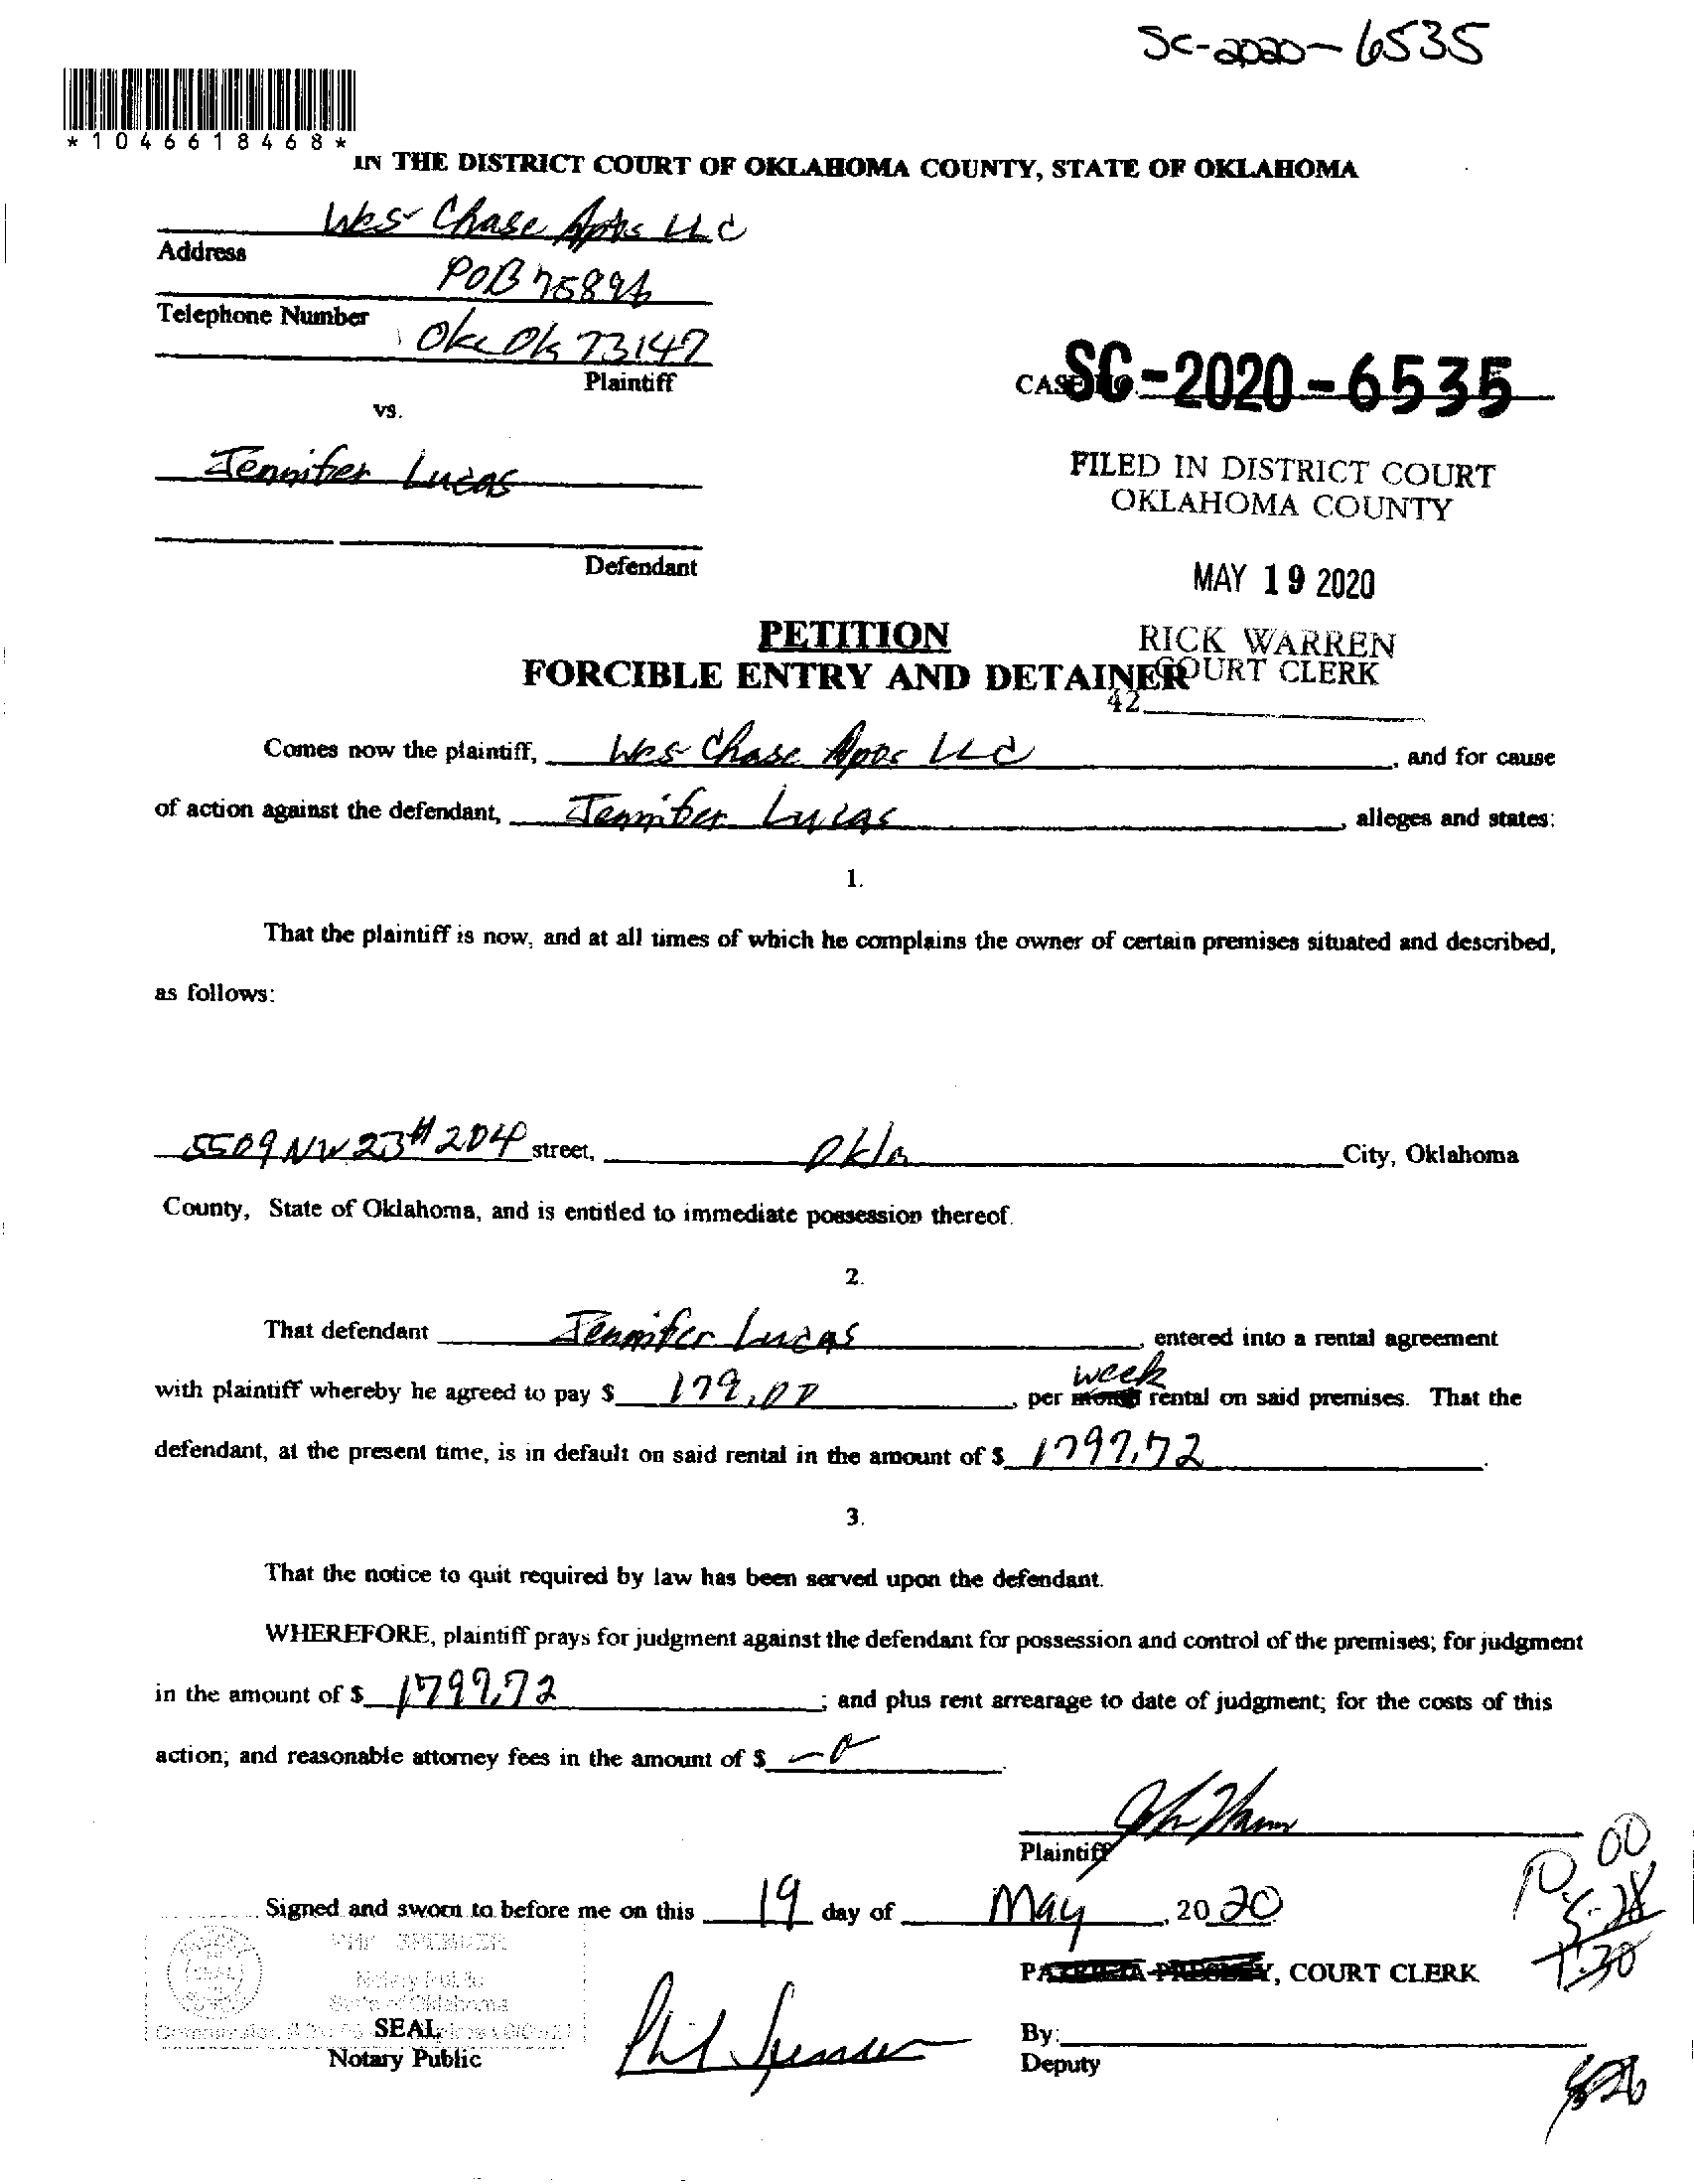 SC-2020-6535
*1046618468*
IN THE DISTRICT COURT OF OKLAHOMA COUNTY, STATE OF OKLAHOMA
Wes Chase Apts LLC
Address
POB 75896
Telephone Number
Okc Ok 73147
Plaintiff
CASE NO. SC-2020-6535
vs.
Jennifer Lucas
FILED IN DISTRICT COURT
OKLAHOMA COUNTY
Defendant
MAY 19 2020
PETITION
RICK WARREN
FORCIBLE ENTRY AND DETAINER
COURT CLERK
42
Comes now the plaintiff, Wes Chase Apts LLC, and for cause
of action against the defendant, Jennifer Lucas, alleges and states:
1.
That the plaintiff is now, and at all times of which he complains the owner of certain premises situated and described,
as follows:
5509 NW 23 # 204 street, Okla City, Oklahoma
County, State of Oklahoma, and is entitled to immediate possession thereof.
2.
That defendant Jennifer Lucas, entered into a rental agreement
week
with plaintiff whereby he agreed to pay $ 179.00, per month rental on said premises. That the
defendant, at the present time, is in default on said rental in the amount of $ 1797.72.
3.
That the notice to quit required by law has been served upon the defendant.
WHEREFORE, plaintiff prays for judgment against the defendant for possession and control of the premises; for judgment
in the amount of $ 1799.72; and plus rent arrearage to date of judgment; for the costs of this
action; and reasonable attorney fees in the amount of $ -0
Plaintiff
Signed and sworn to before me on this 19 day of May, 2020
PHIL SPENCER
Notary Public
State of Oklahoma
PATRICIA PRESLEY, COURT CLERK
SEAL
By:
Notary Public
Phil Spencer
Deputy
5-28
1:30